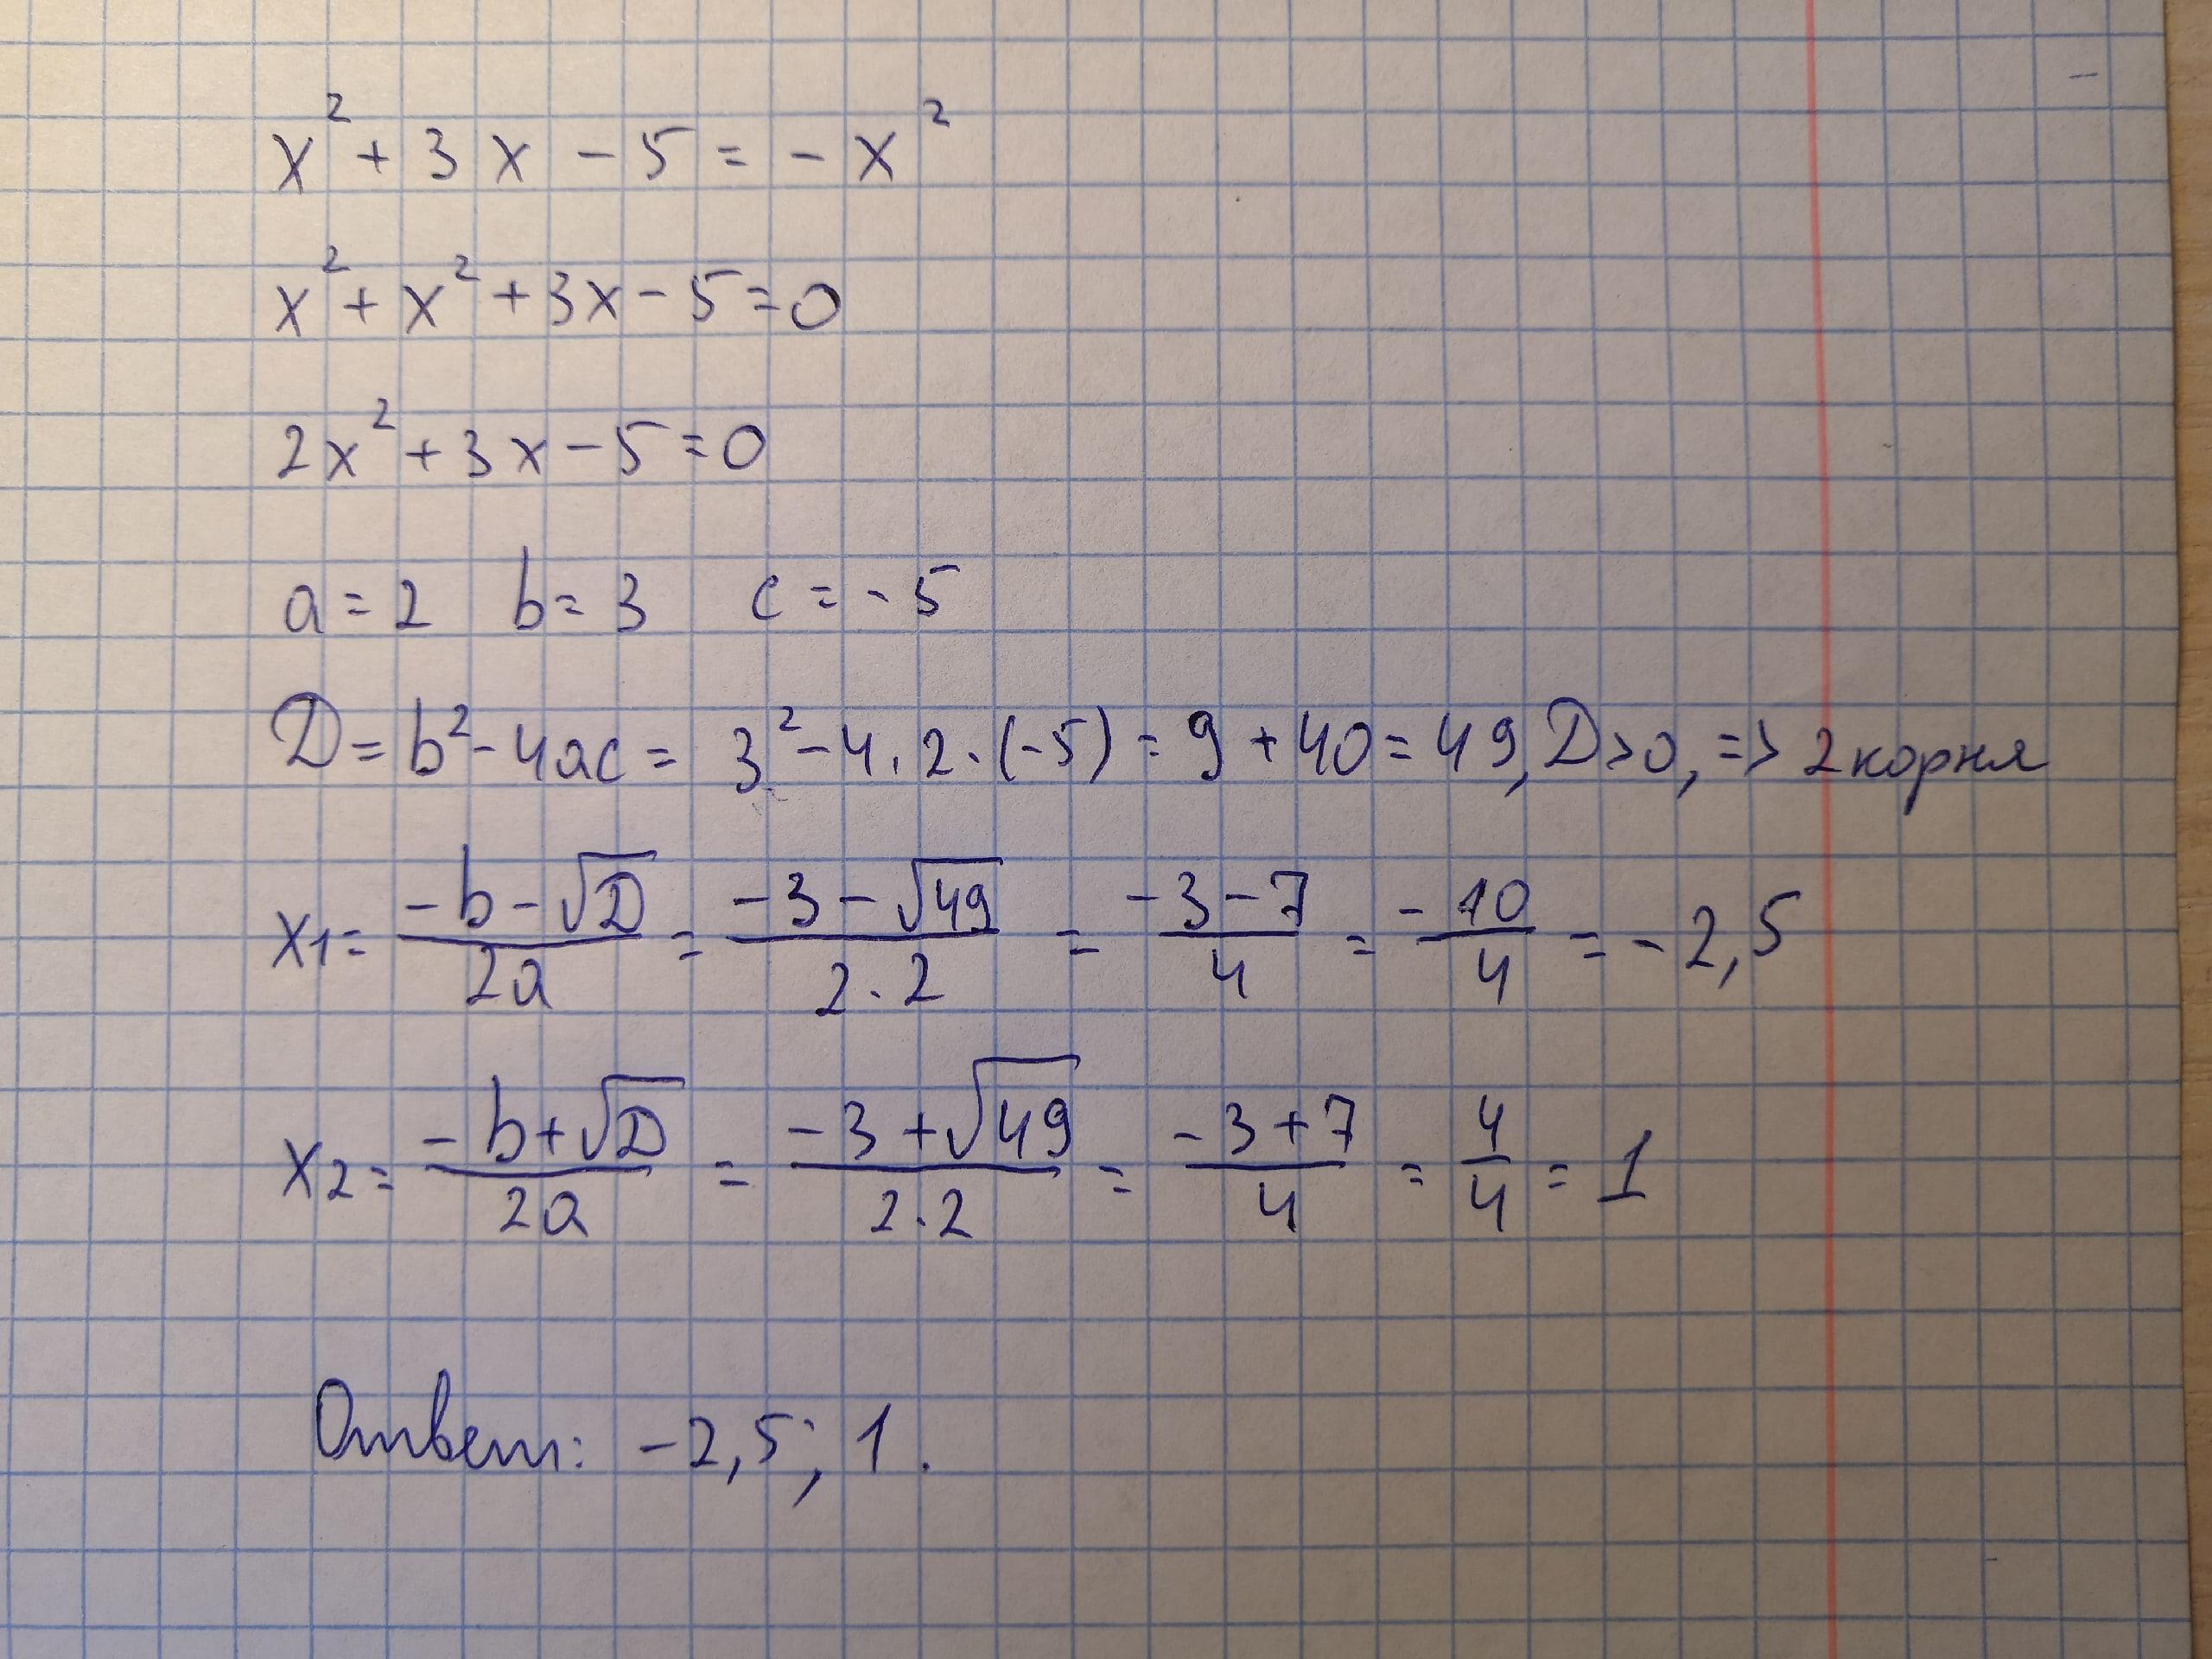 x² + 3x - 5 = - x²
x² + x² + 3x - 5 = 0
2x² + 3x - 5 = 0
a = 2 b = 3 c = - 5
D = b² - 4ac = 3² - 4 . 2 · (-5) = 9 + 40 = 49, D > 0, => 2 корня
x1 = (-b - √D)/(2a) = (-3 - √49)/(2 · 2) = (-3 - 7)/4 = -10/4 = -2,5
x2 = (-b + √D)/(2a) = (-3 + √49)/(2 · 2) = (-3 + 7)/4 = 4/4 = 1
Ответ: -2,5; 1.